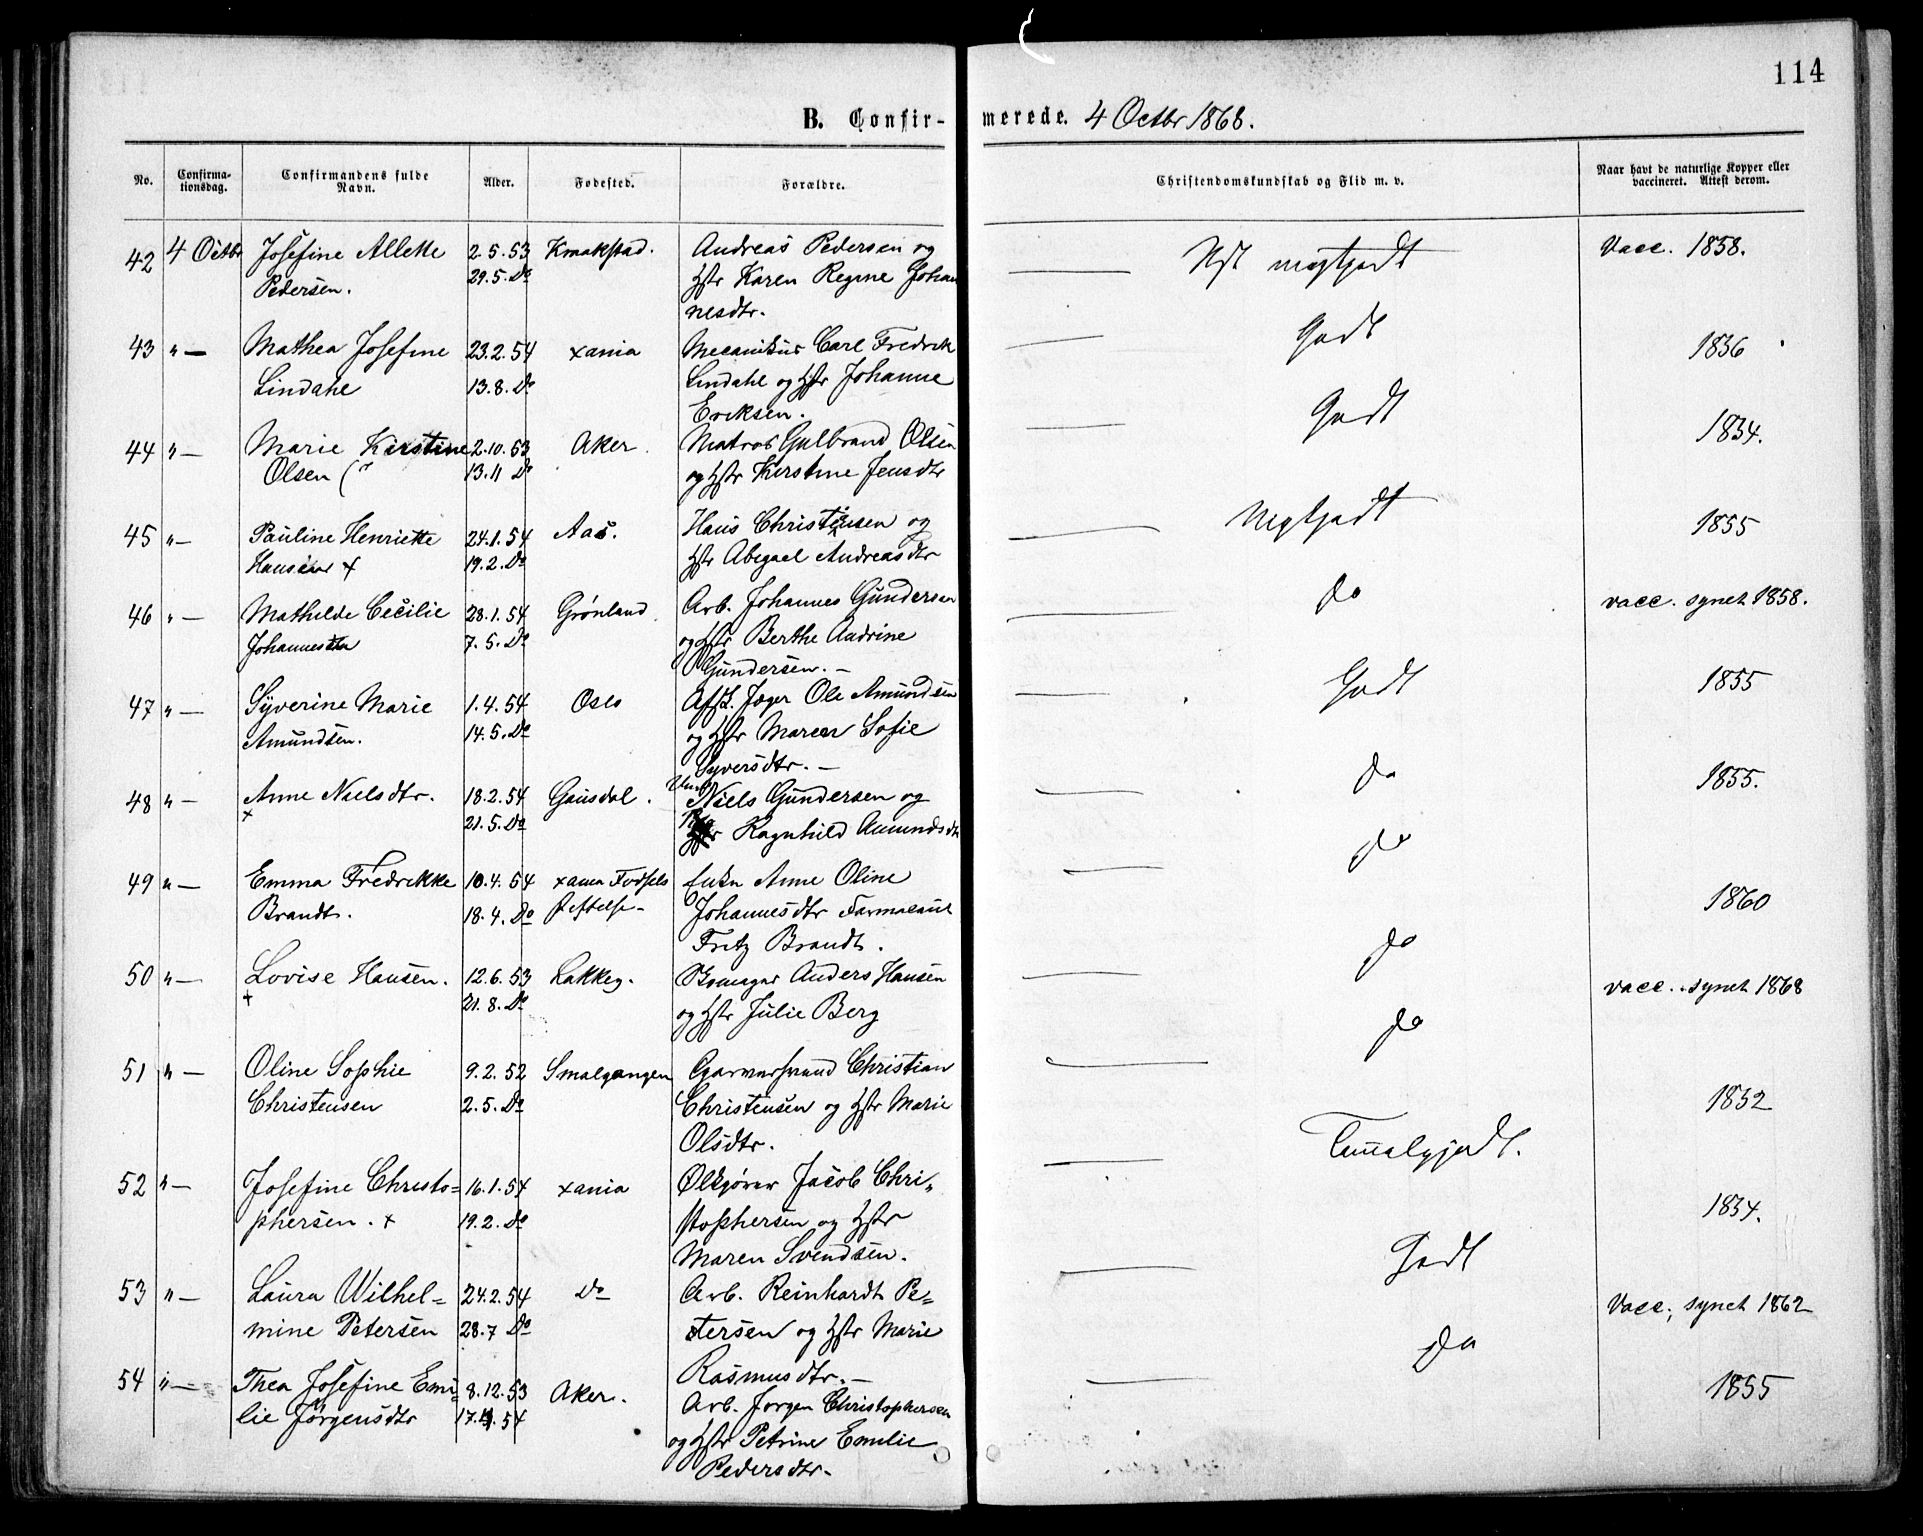 114
B. Confir- merede. 4 Octbr 1868.
No. Confirma-tionsdag. Confirmandens fulde Navn. Alder. Fødested. Forældre. Christendomskundskab og Flid m. v. Naar havt de naturlige Kopper eller vaccineret. Attest derom.
42 4 Octbr Josefine Allette 2.5.53 Andreas Pedersen og Vacc. 1858.
Pedersen. 29.5. Do Hstr Karen Regine Johan
nesdtr.
43 " — Mathea Josefine 23.2.54 xania Mecanikus Carl Fredrik Godt 1856
Lindahl 13.8. Do Lindahl og Hstr Johanne
Eriksen.
44 " — Marie Kirstine 2.10.53 Aker. Matros Gulbrand Olsen Godt 1854.
Olsen 13.11 Do og Hstr Kirstine Jensdtr
45 " — Pauline Henriette 24.1.54 Aas. Hans Christensen og Megtgodt 1855
Hansen x 19.2. Do Hstr Abegael Andreasdtr
46 " — Mathilde Cecilie 28.1.54 Grønland Arb. Johannes Gundersen do vacc. synet 1858.
7.5. Do og Hstr Berthe Andrine
Gundersen. —
47 " — Syverine Marie 1.4.54 Oslo Afsk. Jæger Ole Amundsen Godt 1855
Amundsen. 14.5. Do og Hstr Maren Sofie
Syversdtr. —
48 " — Anne Nielsdtr. 18.2.54 Gausdal. Niels Gundersen og do 1855.
x 21.5. Do Ragnhild Amundsdtr
49 " — Emma Fredrikke 10.4.54 xania Fødsels Enkn Anne Oline do 1860
Brandt. 18.4. Do stiftelse- Johannesdtr Farmaceut
Fritz Brandt.
50 " — Lovise Hansen. 12.6.53 Lakkeg. Anders Hansen do vacc. synet 1868
+ 21.8. Do og Hstr Julie Berg
51 " — Oline Sophie 9.2.52 Smalgangen Garversvend Christian do 1852
Christensen 2.5. Do Christensen og Hstr Marie
Olsdtr.
52 " — Josefine Christo= 16.1.54 xania Jacob Chri= Temmelgodt. 1854.
phersen. x 19.2. Do stophersen og Hstr
Maren Svendsen.
53 " — Laura Wilhel= 24.2.54 Do Arb. Reinhardt Pe= Godt Vacc, synet 1862
mine Petersen 28.7 Do tersen og Hstr Marie
Rasmusdtr. —
54 " — Thea Josefine Emi= 8.12.53 Aker. Arb. Jørgen Christophersen do 1855
lie Jørgensdtr 17.4.54 og Hstr Petrine Emilie
Pedersdtr.